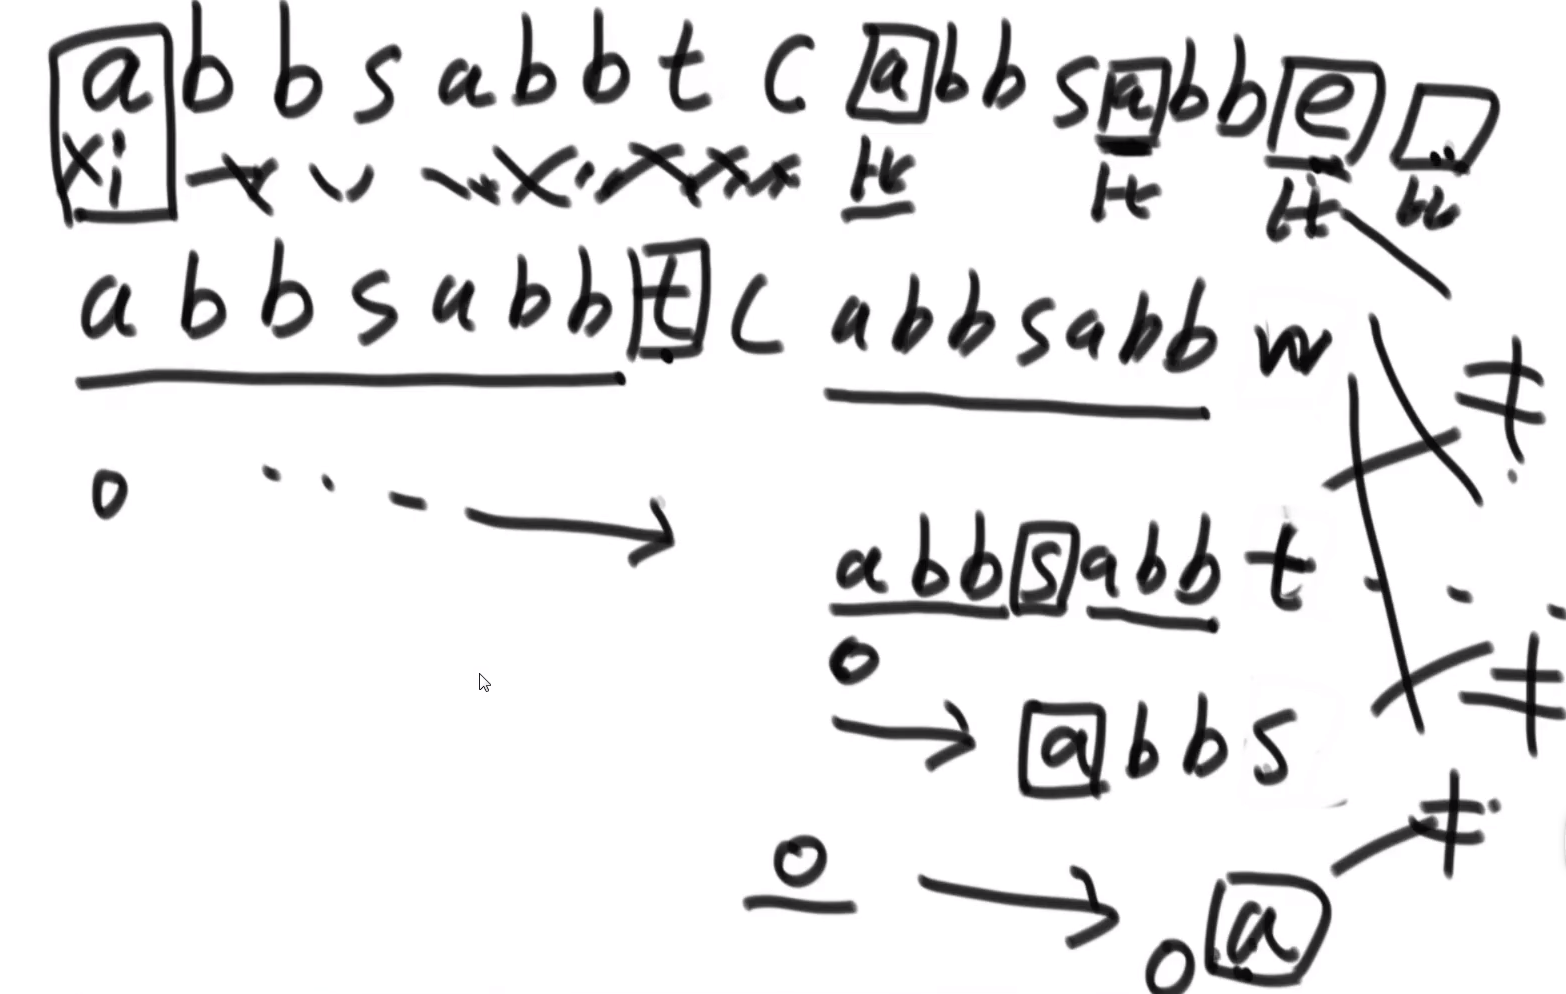 a b b s a b b t c a b b s a b b e
a b b s a b b t c a b b s a b b w
≠
0
a b b s a b b t
0
≠
a b b s
≠
0
0 a